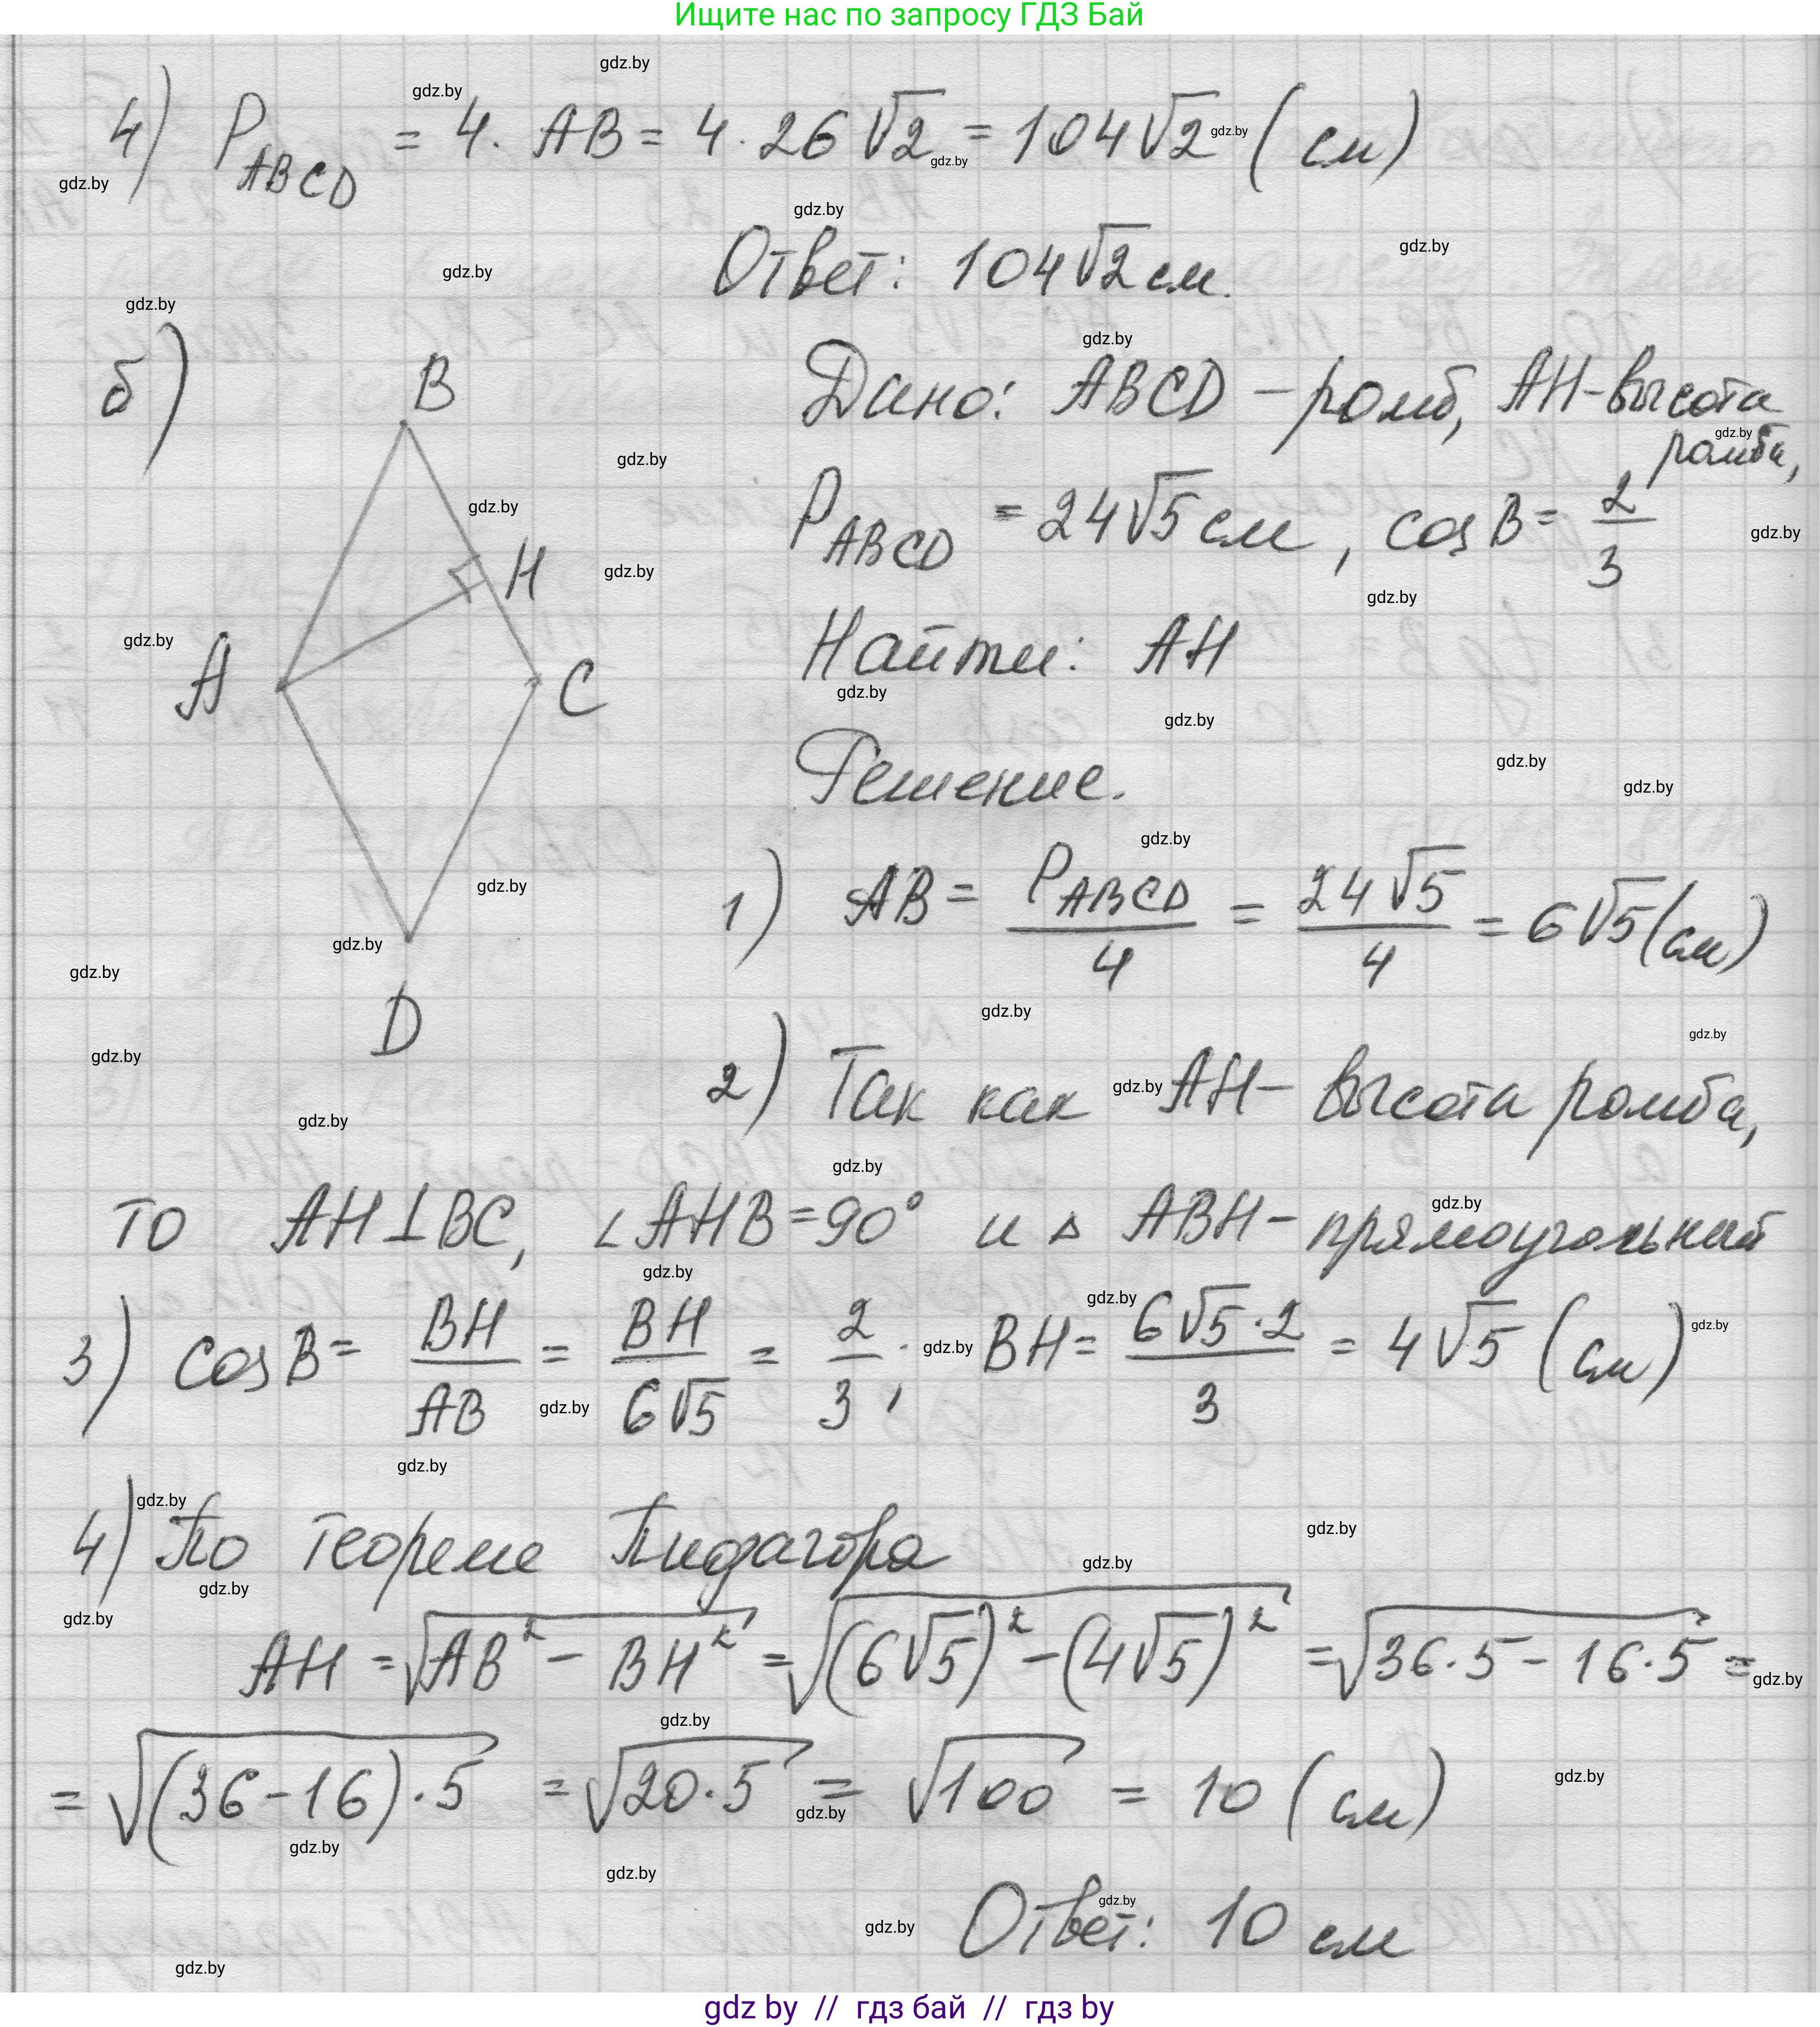 Ищите нас по запросу ГДЗ Бай
4) P_ABCD = 4 · AB = 4 · 26√2 = 104√2 (см)
Ответ: 104√2 см.
б)
B
H
A
C
D
Дано: ABCD – ромб, AH – высота
ромба,
P_ABCD = 24√5 см, cos B = 2/3
Найти: AH
Решение.
1) AB = P_ABCD/4 = 24√5/4 = 6√5 (см)
2) Так как AH – высота ромба,
то AH ⊥ BC, ∠AHB = 90° и △ ABH – прямоугольный
3) cos B = BH/AB = BH/6√5 = 2/3; BH = 6√5·2/3 = 4√5 (см)
4) По теореме Пифагора
AH = √(AB² – BH²) = √((6√5)² – (4√5)²) = √(36·5 – 16·5) =
= √((36 – 16)·5) = √(20·5) = √100 = 10 (см)
Ответ: 10 см
gdz.by
gdz by // гдз бай // гдз by